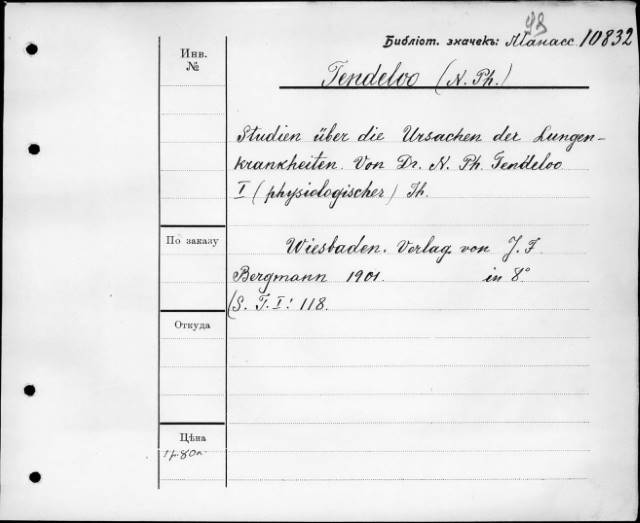 98
Библіот. значекъ: Манасс. 10832
Инв.
№
Tendeloo (N. Ph.)
Studien über die Ursachen der Lungen-
krankheiten. Von Dr. N. Ph. Tendeloo
I (physiologischer) Th.
По заказу
Wiesbaden. Verlag von J. F.
Bergmann 1901. in 8°
(S. T. I: 118.
Откуда
Цѣна
1р.80к.